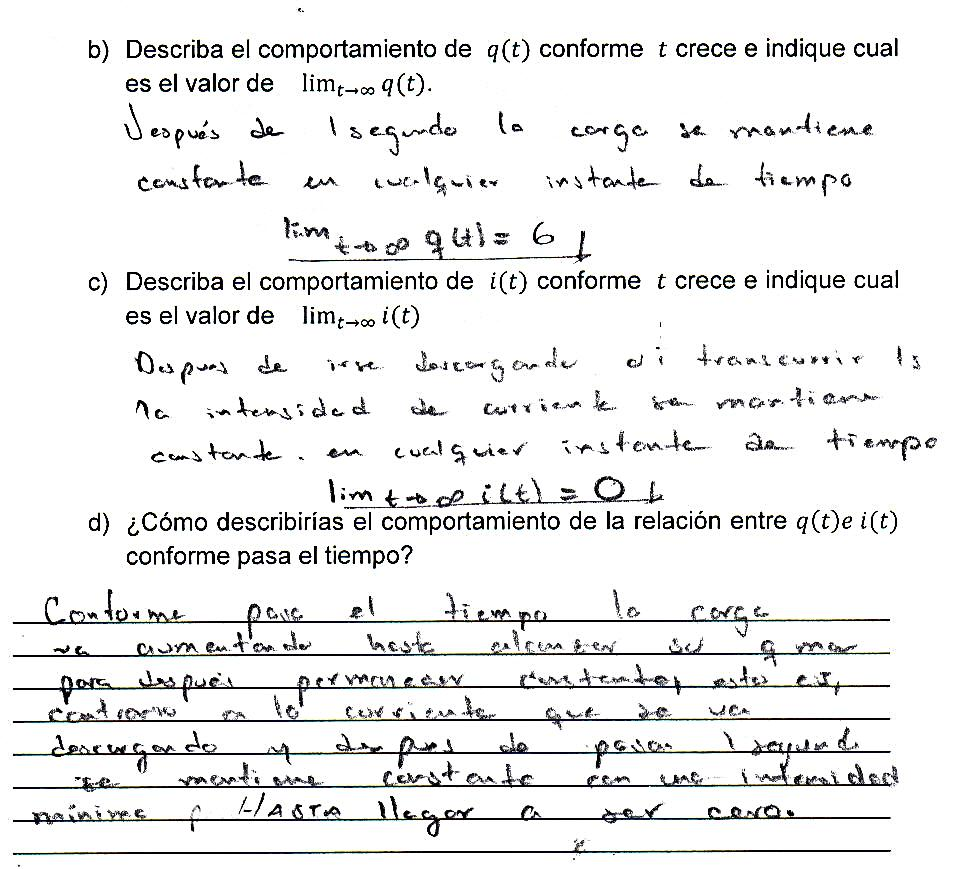 b) Describa el comportamiento de q(t) conforme t crece e indique cual
es el valor de lim t→∞ q(t).
Después de 1 segundo la carga se mantiene
constante en cualquier instante de tiempo
lim t→∞ q(t) = 6
c) Describa el comportamiento de i(t) conforme t crece e indique cual
es el valor de lim t→∞ i(t)
Despues de irse descargando al transcurrir 1s
la intensidad de corriente se mantiene
constante. en cualquier instante de tiempo
lim t→∞ i(t) = 0
d) ¿Cómo describirías el comportamiento de la relación entre q(t)e i(t)
conforme pasa el tiempo?
Conforme pasa el tiempo la carga
va aumentando hasta alcanzar su q max
para después permanecer constante, esto es,
contrario a la corriente que se va
descargando y despues de pasar 1 segundo
se mantiene constante con una intensidad
mínima HASTA llegar a ser cero.